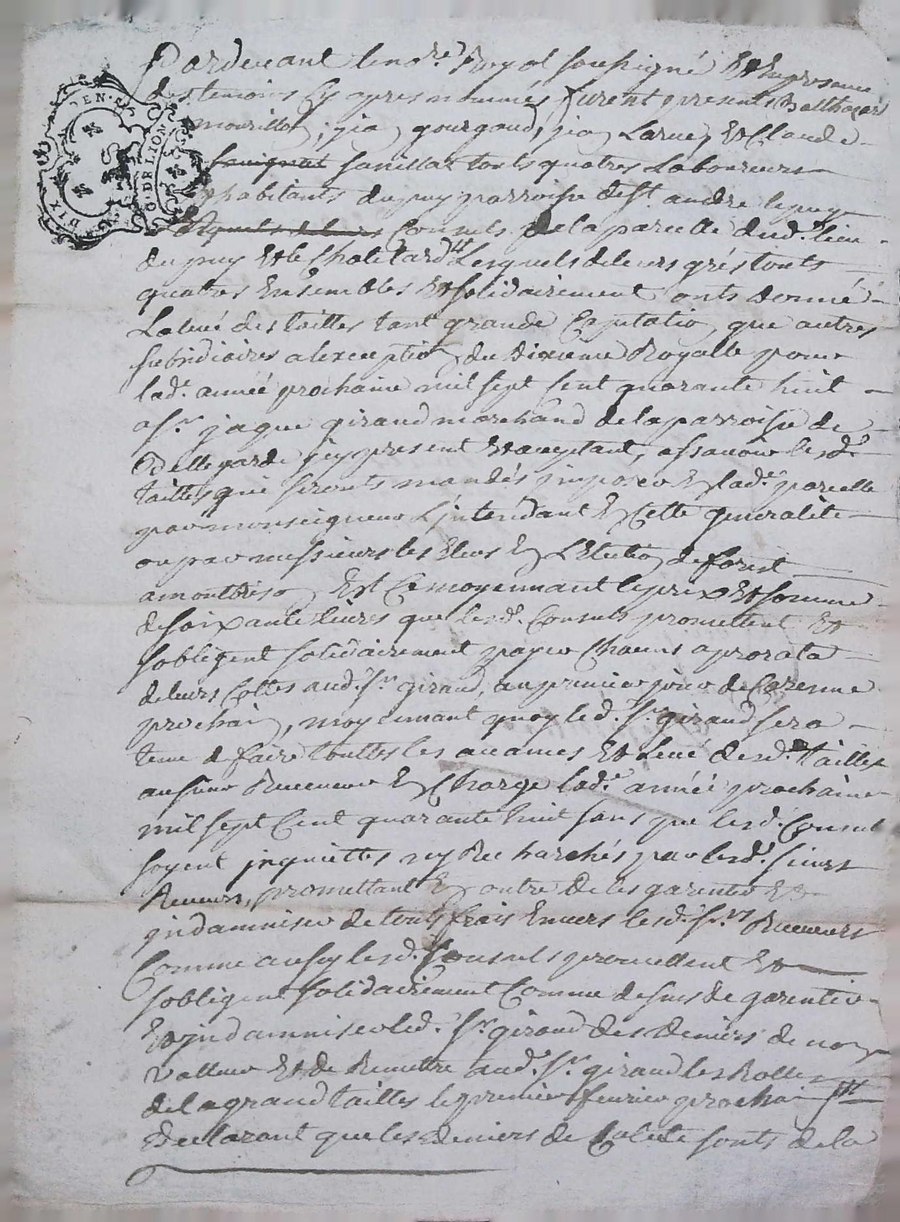 Pardevant le no.re Royal soussigné Et En presence
des temoins Cy apres nommés furent presents Balthazard
mourillon, jea gourgaud, jea Larue, Et Claude
sanillat touts quatres Laboureurs
habitants du puy parroisse de St andre le puy
Consuls de la parcelle dud. lieu
du puy Et les Lesquels de leurs grés touts
quatres Ensembles Et solidairement onts donné
La levé des tailles tant grande Capitatio, que autres
subsidiaires a lexceptio du dixieme Royalle pour
lad.e année prochaine mil sept Cent quarante huit
a Sr. jaque girand marchand de la parroisse de
Bellegarde jcy present Et aceptant, assavoir lesd.
tailles qui seronts mandés jmposer En lad.e parcelle
par monseigneur L'jntendant En Cette generalité
ou par messieurs les Eleus En L'Election de forest
a montbriso, Est Ce moyennant le prix Et somme
de soixante livres que lesd. Consuls promettent Et
sobligent solidairement payer Chacuns a prorata
de leurs Cottes aud. Sr. girand, au premier jour de Caresme
prochai, moyennant quoy led. Sr. girand sera
tenu de faire touttes les avances Et levé desd. tailles
au sieur Receveur En Charge lad.e année prochaine
mil sept Cent quarante huit sans que lesd. Consuls
soyent jnquiettes ny Recharchés par lesd. sieurs
Receveurs, promettant En outre de les garentir Et
jndamniser de touts frais Envers lesd. Srs. Receveurs
Comme aussy lesd. Consuls promettent Et
sobligent solidairement Comme dessus de garentir
Et jndamniser led. Sr. girand des deniers de non
valleur Et de Remettre aud. Sr. girand les Rolles
de la grand tailles le premier fevrier prochai
declarant que les deniers de Colecte sonts de la
DIX DEN.
G. DE LION